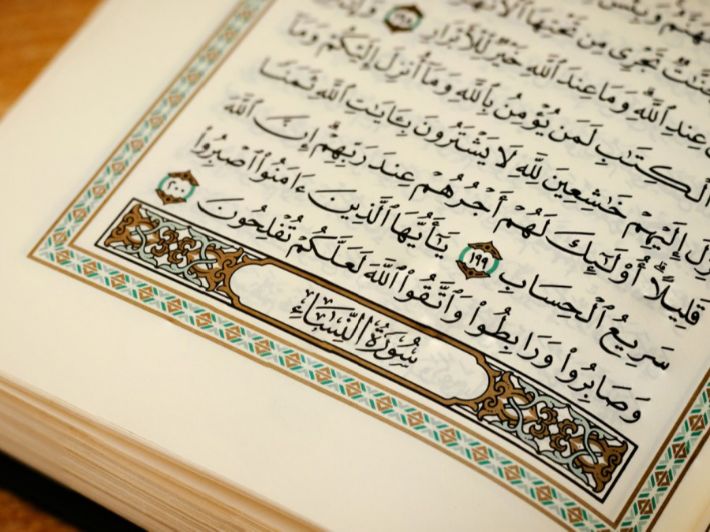 وَبِئْسَ
تَجْرِى مِن تَحْتِهَا
عِندِ ٱللَّهِ ۗ وَمَا عِندَ ٱللَّهِ خَيْرٌ لِّلْأَبْرَارِ ١٩٨
ٱلْكِتَـٰبِ لَمَن يُؤْمِنُ بِٱللَّهِ وَمَآ أُنزِلَ إِلَيْكُمْ وَمَآ
إِلَيْهِمْ خَـٰشِعِينَ لِلَّهِ لَا يَشْتَرُونَ بِـَٔايَـٰتِ ٱللَّهِ ثَمَنًا
قَلِيلًا ۗ أُو۟لَـٰٓئِكَ لَهُمْ أَجْرُهُمْ عِندَ رَبِّهِمْ ۗ إِنَّ ٱللَّهَ
سَرِيعُ ٱلْحِسَابِ ١٩٩ يَـٰٓأَيُّهَا ٱلَّذِينَ ءَامَنُوا۟ ٱصْبِرُوا۟
وَصَابِرُوا۟ وَرَابِطُوا۟ وَٱتَّقُوا۟ ٱللَّهَ لَعَلَّكُمْ تُفْلِحُونَ ٢٠٠
سُورَةُ النِّسَاءِ